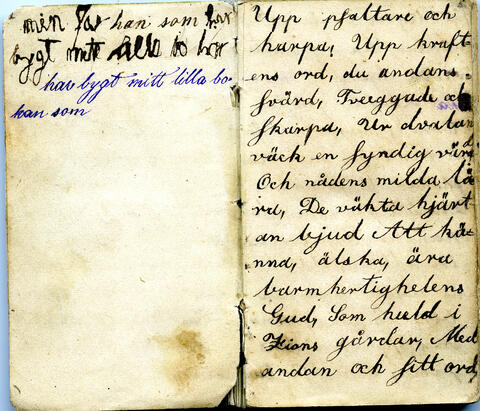 min far han som har
bygt mitt lilla bo har
har bygt mitt lilla bo
han som
Upp psaltare och
harpa, Upp kraft-
ens ord, du andans
svärd, Tveeggade och
skarpa, Ur dvalan
väck en syndig värd
Och nådens milda lä
ra, De väkta hjärt
an bjud Att kä-
nna, älska, ära
barmhertighelens
Gud, Som huld i
Zions gårdar, Med
andan och sitt ord